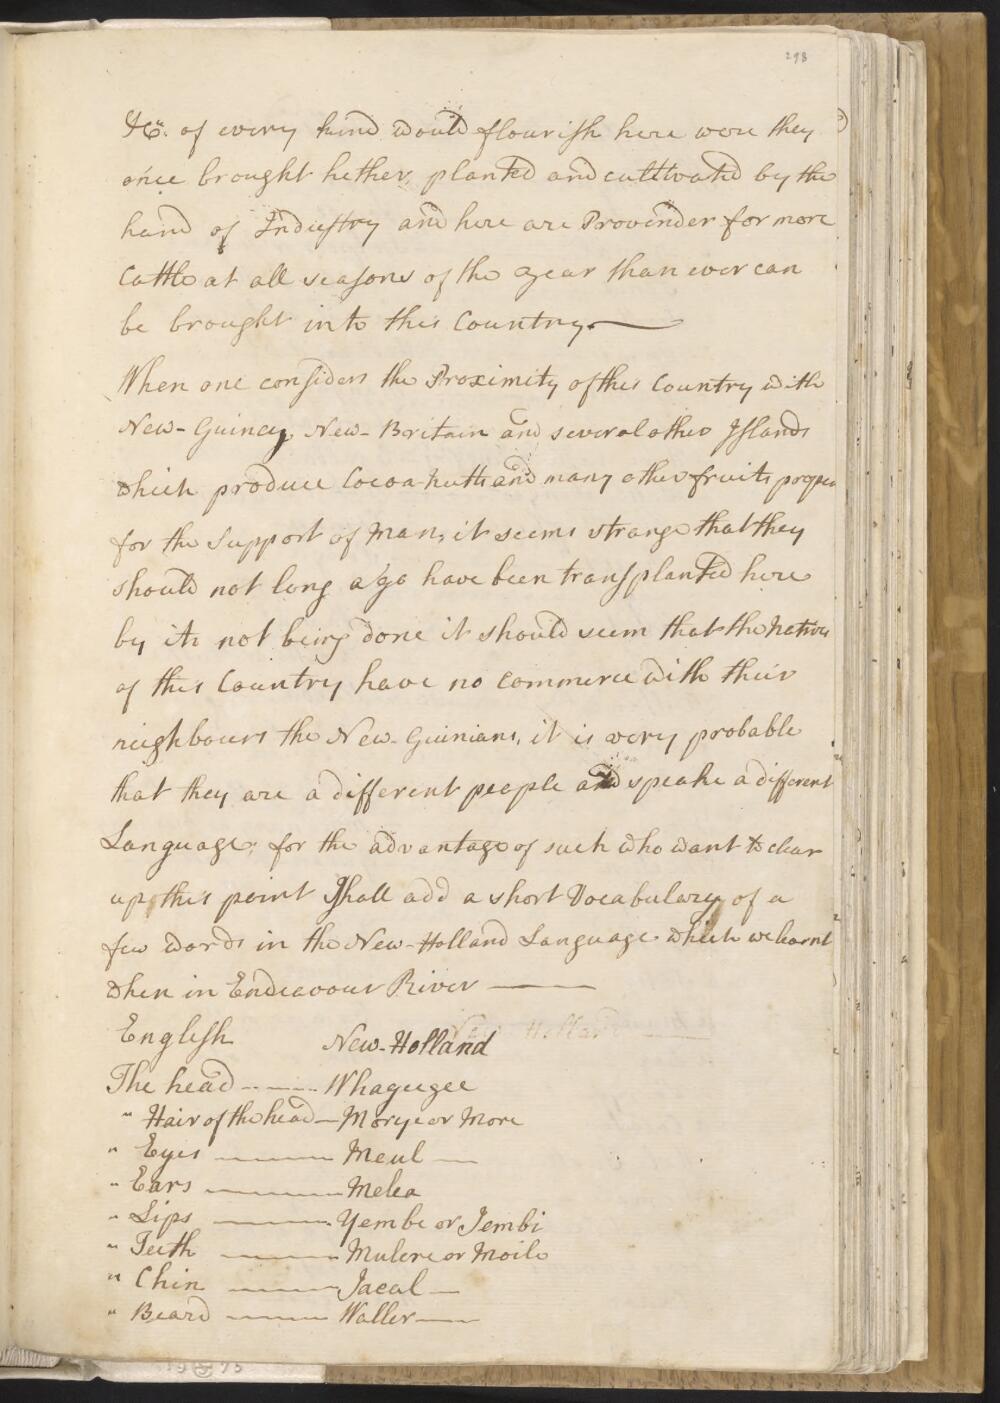 298
&Ca. of every kind would flourish here were they
once brought hether, planted and cultivated by the
hand of Industry and here are Provender for more
Cattle at all seasons of the year than ever can
be brought into this Country.
When one considers the Proximity of this Country with
New-Guiney, New-Britain and several other Islands
which produce Cocoa-nutts and many other fruits proper
for the Support of Man, it seems strange that they
should not long ago have been transplanted here
by its not being done it should seem that the Natives
of this Country have no commerce with their
neighbours the New-Guinians, it is very probable
that they are a different people and speake a different
Language. for the advantage of such who want to clear
up this point I shall add a short Vocabulary of a
few words in the New-Holland Language which we learnt
when in Endeavour River
English New-Holland
The head Whageegee
" Hair of the head Morye or More
" Eyes Meul
" Ears Melea
" Lips Yembe or Jembi
" Teeth Mulere or Moile
" Chin Jacal
" Beard Waller